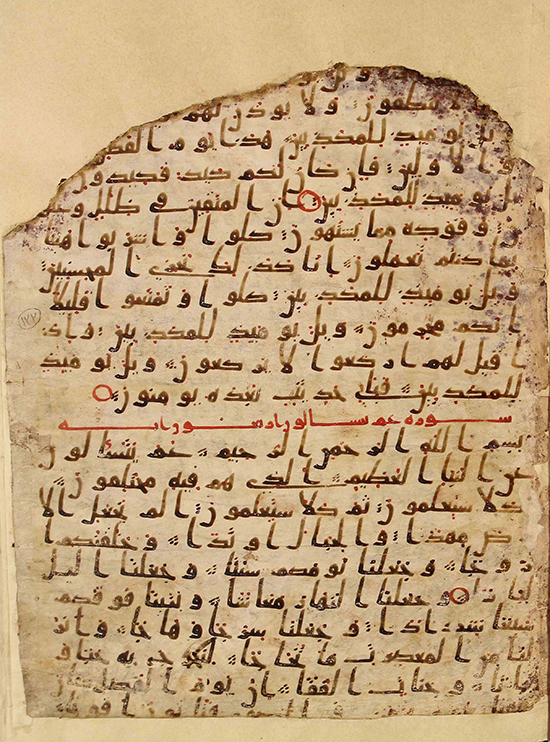 لا ينطقون ولا يوذن لهم
ويل يوميذ للمكذبين هذا يوم الفصل
والاولين فان كان لكم كيد فكيدون
ويل يوميذ للمكذبين ان المتقين في ظلل وعيو
ن وفوكه مما يشتهون كلوا واشربوا هنيا
بما كنتم تعملون انا كذلك نجزي المحسنين
ويل يوميذ للمكذبين كلوا وتمتعوا قليلا
انكم مجرمون ويل يوميذ للمكذبين واذ
ا قيل لهم اركعوا لا يركعون ويل يوميذ
للمكذبين فباي حديث بعده يومنون
سورة عم يتسالون
بسم الله الرحمن الرحيم عم يتسالون
عن النبا العظيم الذي هم فيه مختلفون
كلا سيعلمون ثم كلا سيعلمون الم نجعل الا
رض مهدا والجبال اوتدا وخلقنكم ا
زوجا وجعلنا نومكم سبتا وجعلنا اليل
لباسا وجعلنا النهار معاشا وبنينا فوقكم
سبعا شدادا وجعلنا سرجا وهاجا وانز
لنا من المعصرت ما ثجاجا لنخرج به حبا و
نباتا وجنت الفافا ان يوم الفصل كان
١٧٧